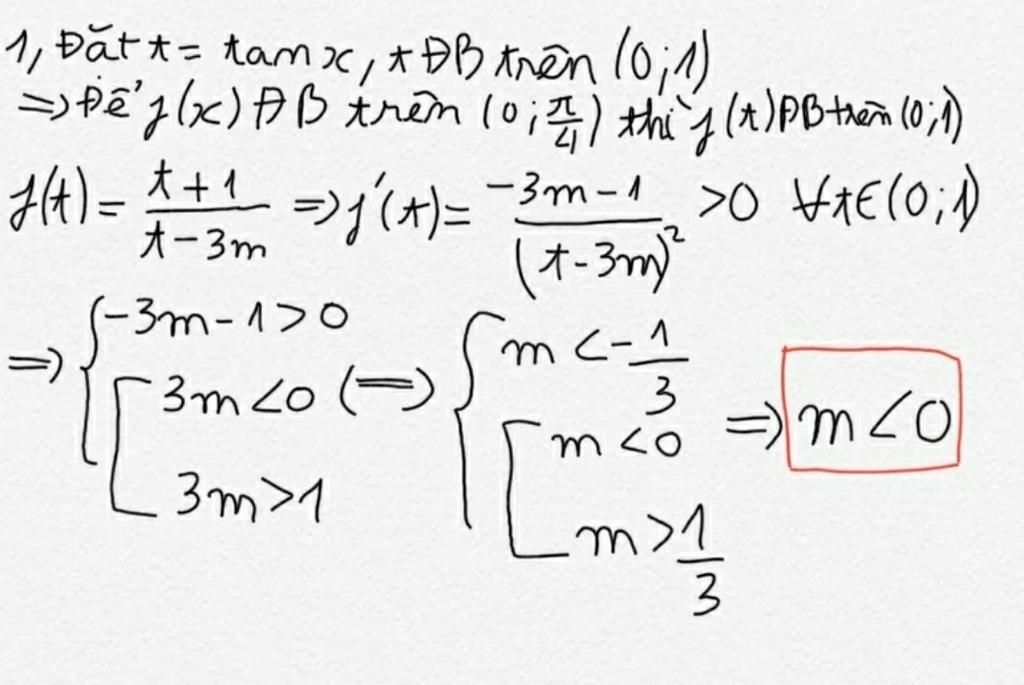 1, Đặt t = tan x, t ĐB trên (0;1)
=> Để f(x) ĐB trên (0; π/4) thì f(t) ĐB trên (0;1)
f(t) = (t+1)/(t-3m) => f'(t) = (-3m-1)/(t-3m)² >0 ∀t∈(0;1)
=> { -3m-1>0 [ 3m<0 3m>1 <=> { m<-1/3 [ m<0 m>1/3 => m<0